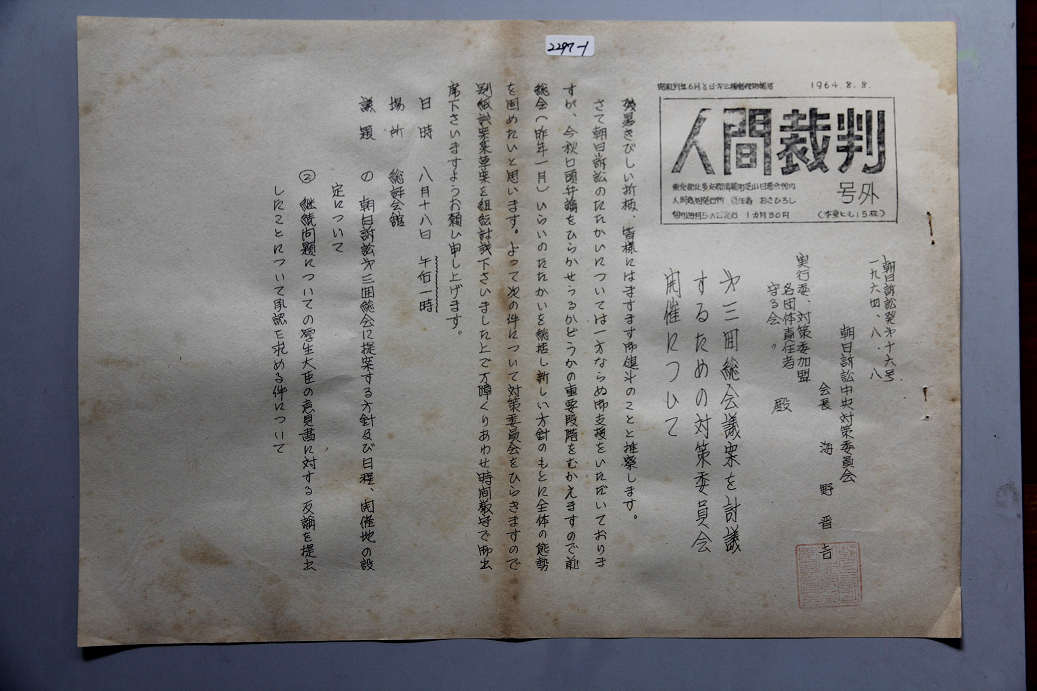 2297-1
1964.8.8.
人間裁判
号外
(本号ヒし15枚)
朝日訴訟発才十六号
一九六四、八、八
朝日訴訟中央対策委員会
会長 海野晋吉
実行委、対策委加盟
各団体責任者
守る会〃
殿
才三回総会議案を討議
するための対策委員会
開催について
残暑きびしい折柄、皆様にはますます御健斗のことと推察します。
さて朝日訴訟のたたかいについては一方ならぬ御支援をいただいておりま
すが、今秋口頭弁論をひらかせうるかどうかの重要段階をむかえますので前
総会(昨年一月)いらいのたたかいを総括し新しい方針のもとに全体の態勢
を固めたいと思います。よって次の件について対策委員会をひらきますので
別紙議案草案を組織討議下さいました上で万障くりあわせ時間厳守で御出
席下さいますようお願い申し上げます。
日時 八月十八日 午后一時
場所 総評会館
議題 の 朝日訴訟才三回総会に提案する方針及び日程、開催地の設
定について
② 継続問題についての厚生大臣の意見書に対する反論を提出
したことについて承認を求める件について